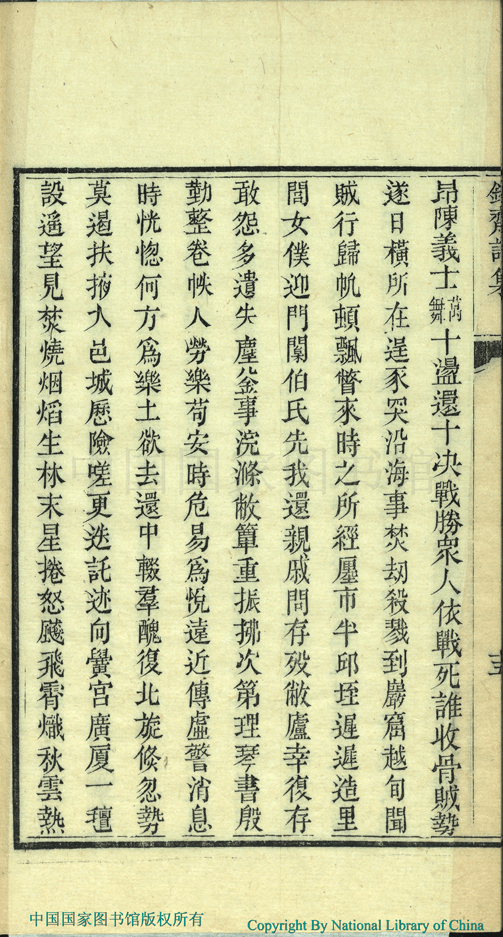 昂陳義士萬舞十盪還十決戰勝衆人依戰死誰收骨賊勢
遂日橫所在逞豕突沿海事焚刼殺戮到巖窟越旬聞
賊行歸帆頓飄瞥來時之所經廛市半邱垤遲遲造里
閭女僕迎門闑伯氏先我還親戚問存歿敝廬幸復存
敢怨多遺失塵釡事浣滌敝簟重振拂次第理琴書殷
勤整卷帙人勞樂苟安時危易爲悅遠近傳虛警消息
時恍惚何方爲樂土欲去還中輟羣醜復北旋倐忽勢
莫遏扶掖入邑城歷險嗟更迭託迹向黌宮廣厦一氊
設遥望見焚燒烟熖生林末星捲怒飈飛霄熾秋雲熱
齋詩集
中国国家图书馆
中国国家图书馆版权所有
Copyright By National Library of China